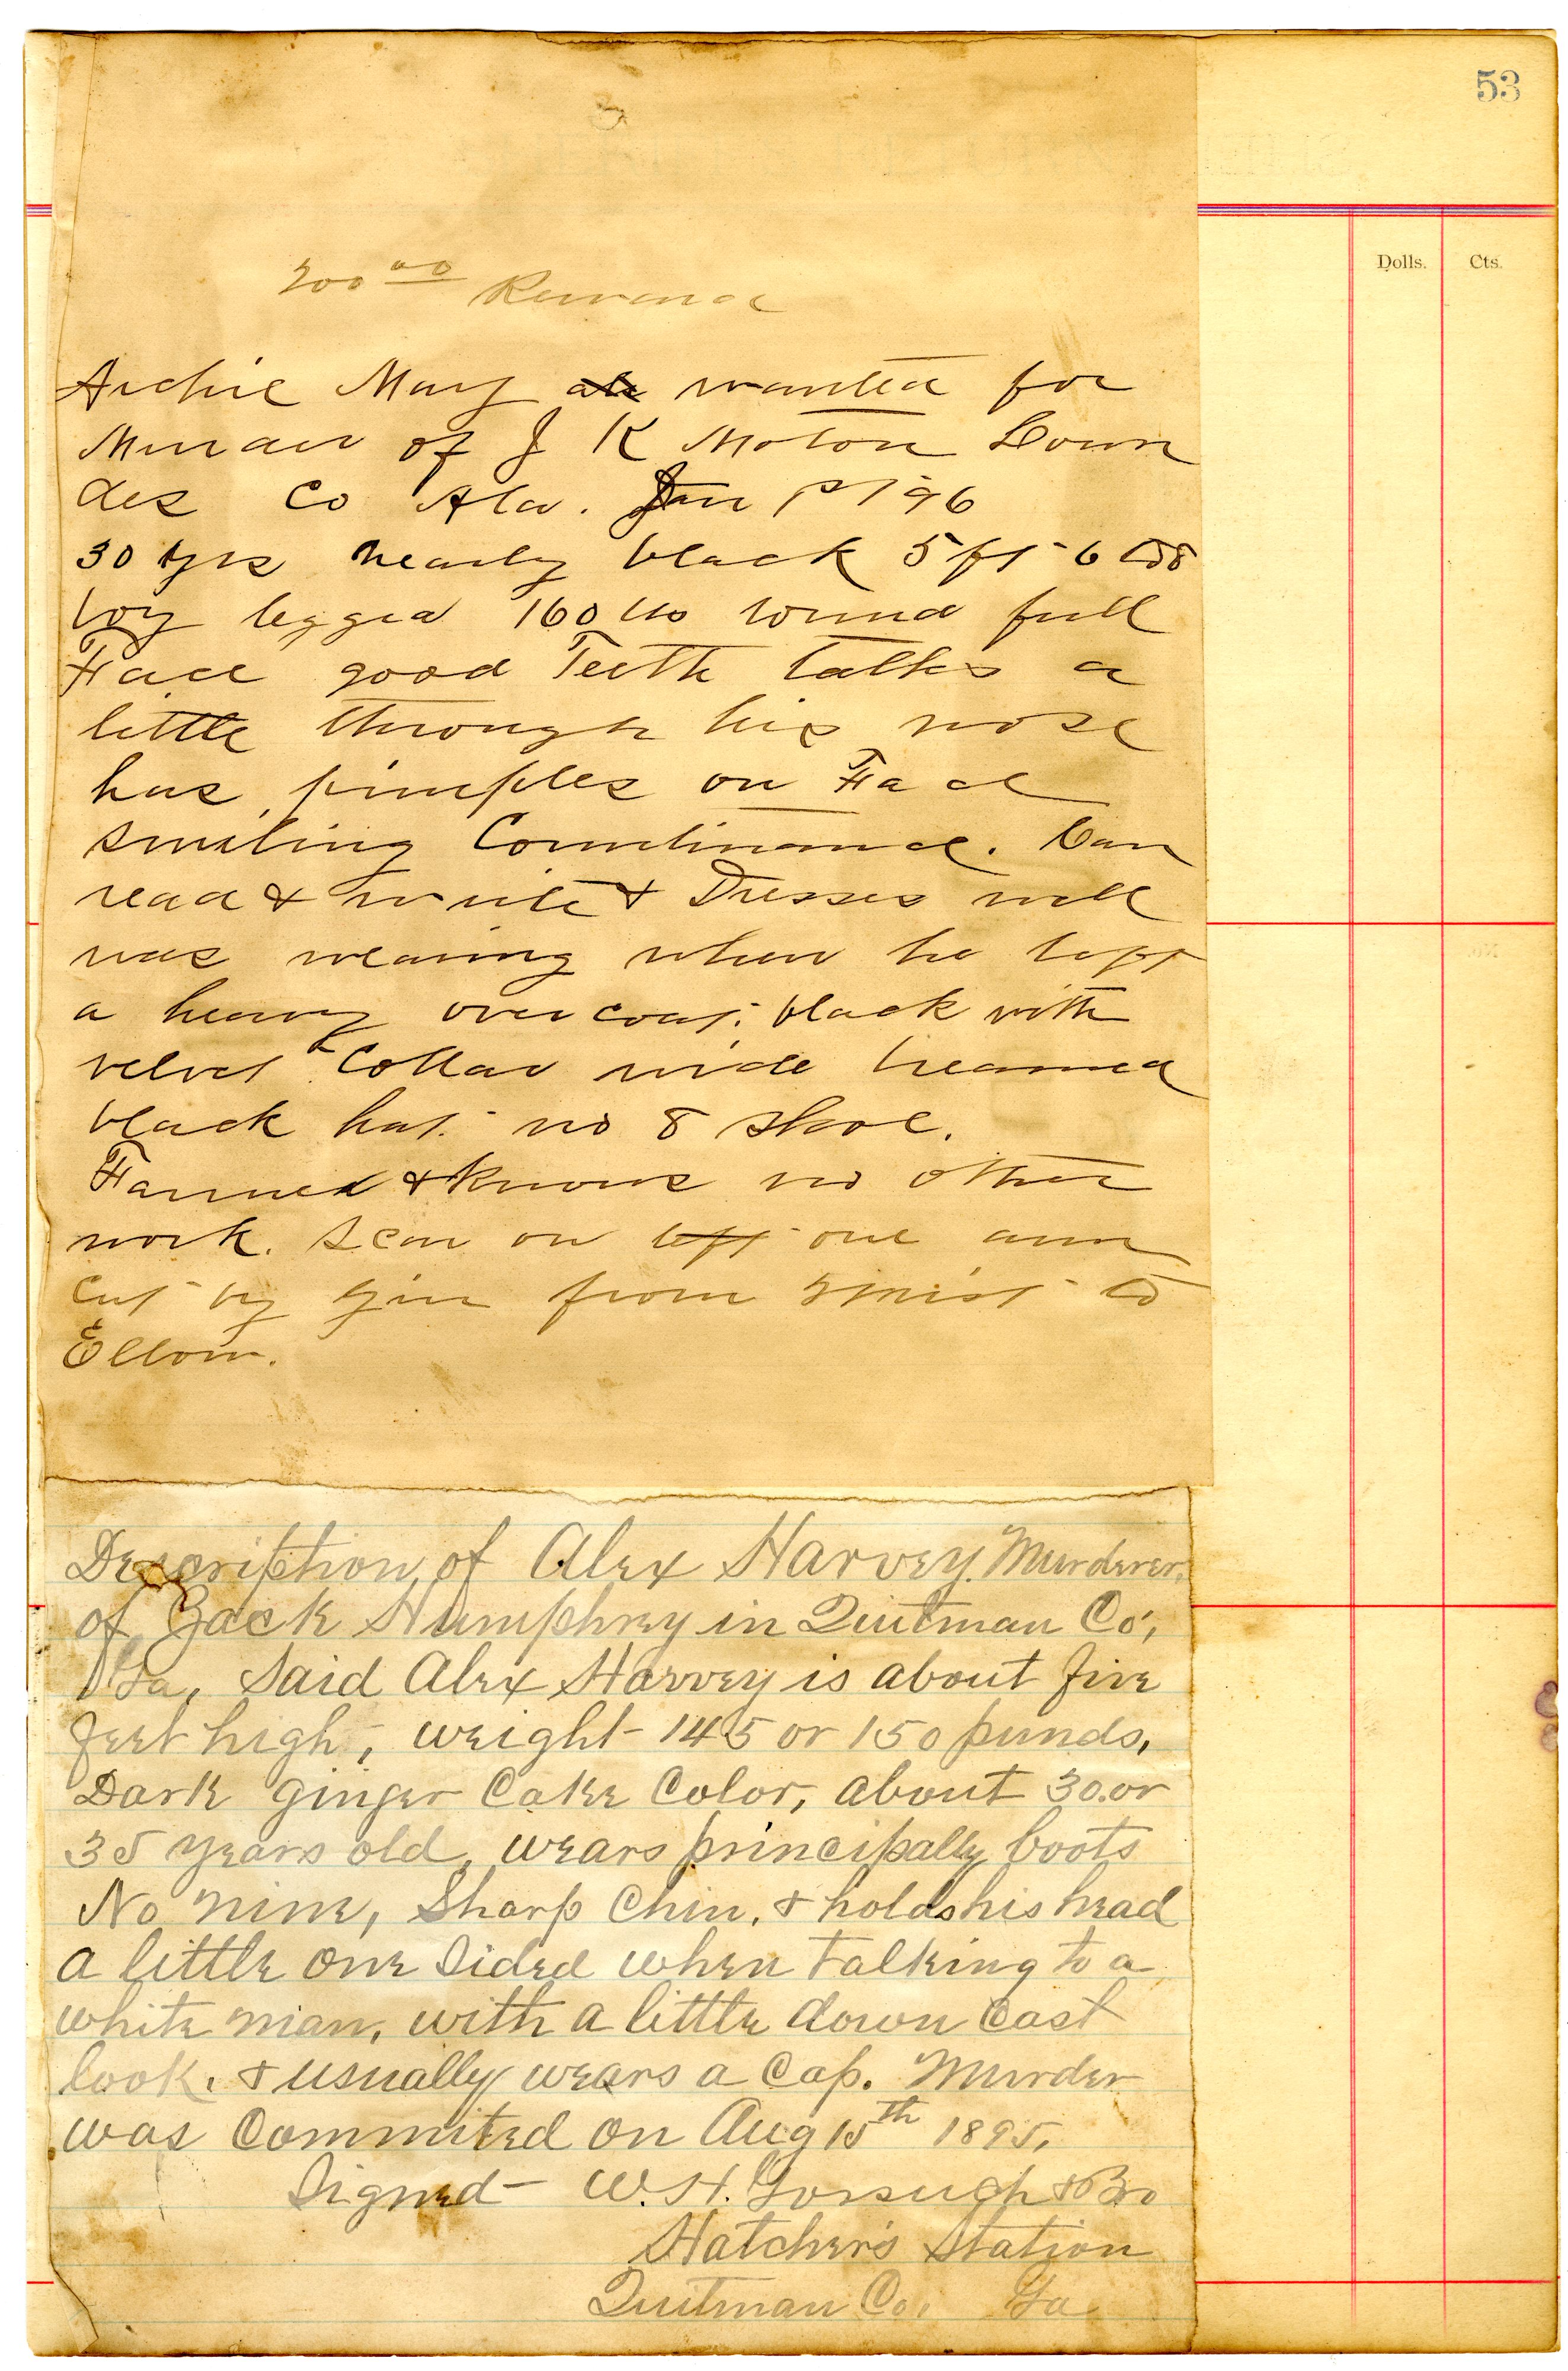 53
Dolls. Cts.
200 00 Reward
Archie May als wanted for
Murder of J K Moton Lown
des Co Ala. Jan 1st 96
30 yrs nearly black 5 ft 6 to 8
boy legged 160 lbs round full
Face good Teeth talks a
little through his nose
has pimples on Face
smiling Countinance. Can
read & write & Dresses well
was wearing when he left
a heavy over coat. black with
velvet Collar wide breamed
black hat. no 8 shoe.
Farmer & knows no other
work. Scar on left one arm
cut by gin from wrist to
Elbow.
Description of Alex Harvey. Murderer,
of Zack Humphrey in Quitman Co,
Ga, Said Alex Harvey is about five
feet high, weight - 145 or 150 punds,
Dark ginger Cake Color, about 30. or
35 years old, wears principally boots
No nine, Sharp Chin, & holds his head
a little one Sided when talking to a
white man, with a little down Cast
look. & usually wears a Cap. Murder
was Commited on Aug 15th 1895,
Signed - W. H. Gorsuch & Bro
Hatcher's Station
Quitman Co, Ga